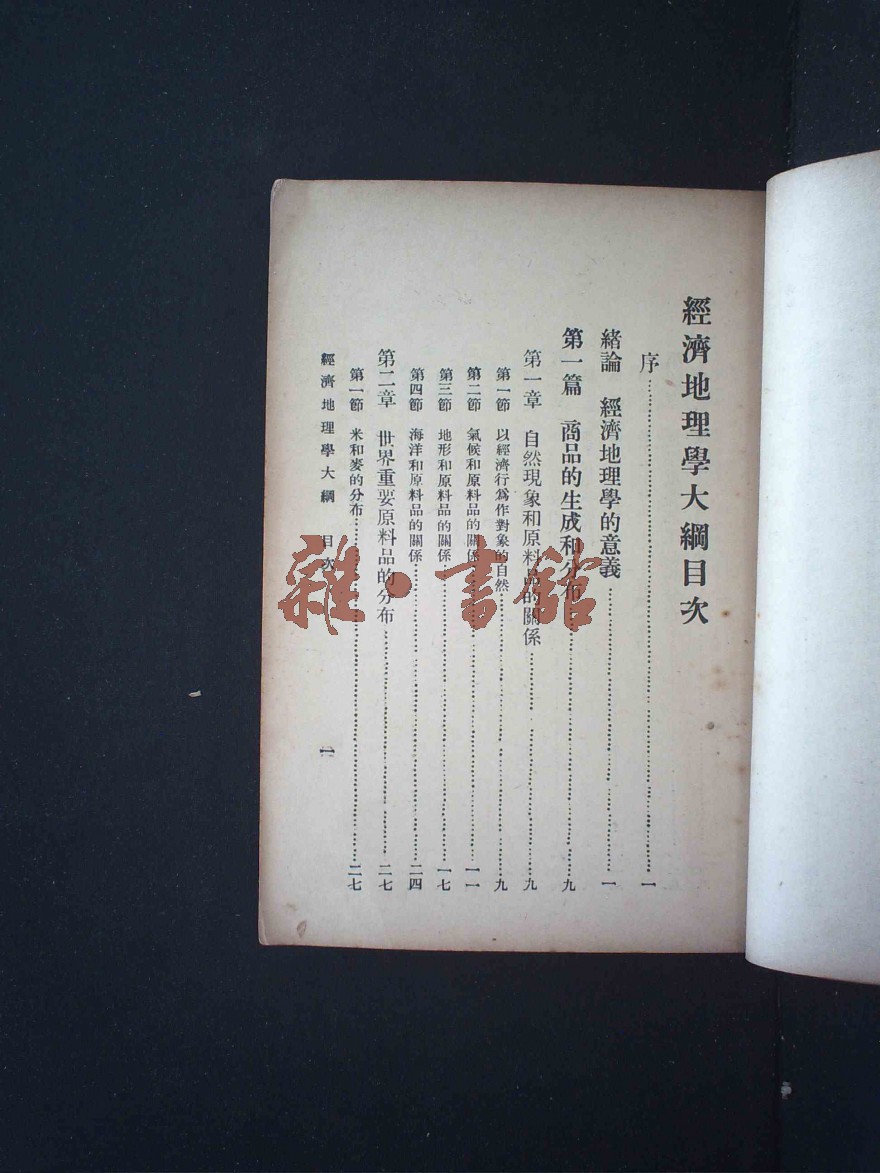 經濟地理學大綱目次
序……一
緒論　經濟地理學的意義……一
第一篇　商品的生成和分布……九
第一章　自然現象和原料品的關係……九
第一節　以經濟行爲作對象的自然……九
第二節　氣候和原料品的關係……一一
第三節　地形和原料品的關係……一七
第四節　海洋和原料品的關係……二四
第二章　世界重要原料品的分布……二七
第一節　米和麥的分布……二七
經濟地理學大綱　目次
雜·書館